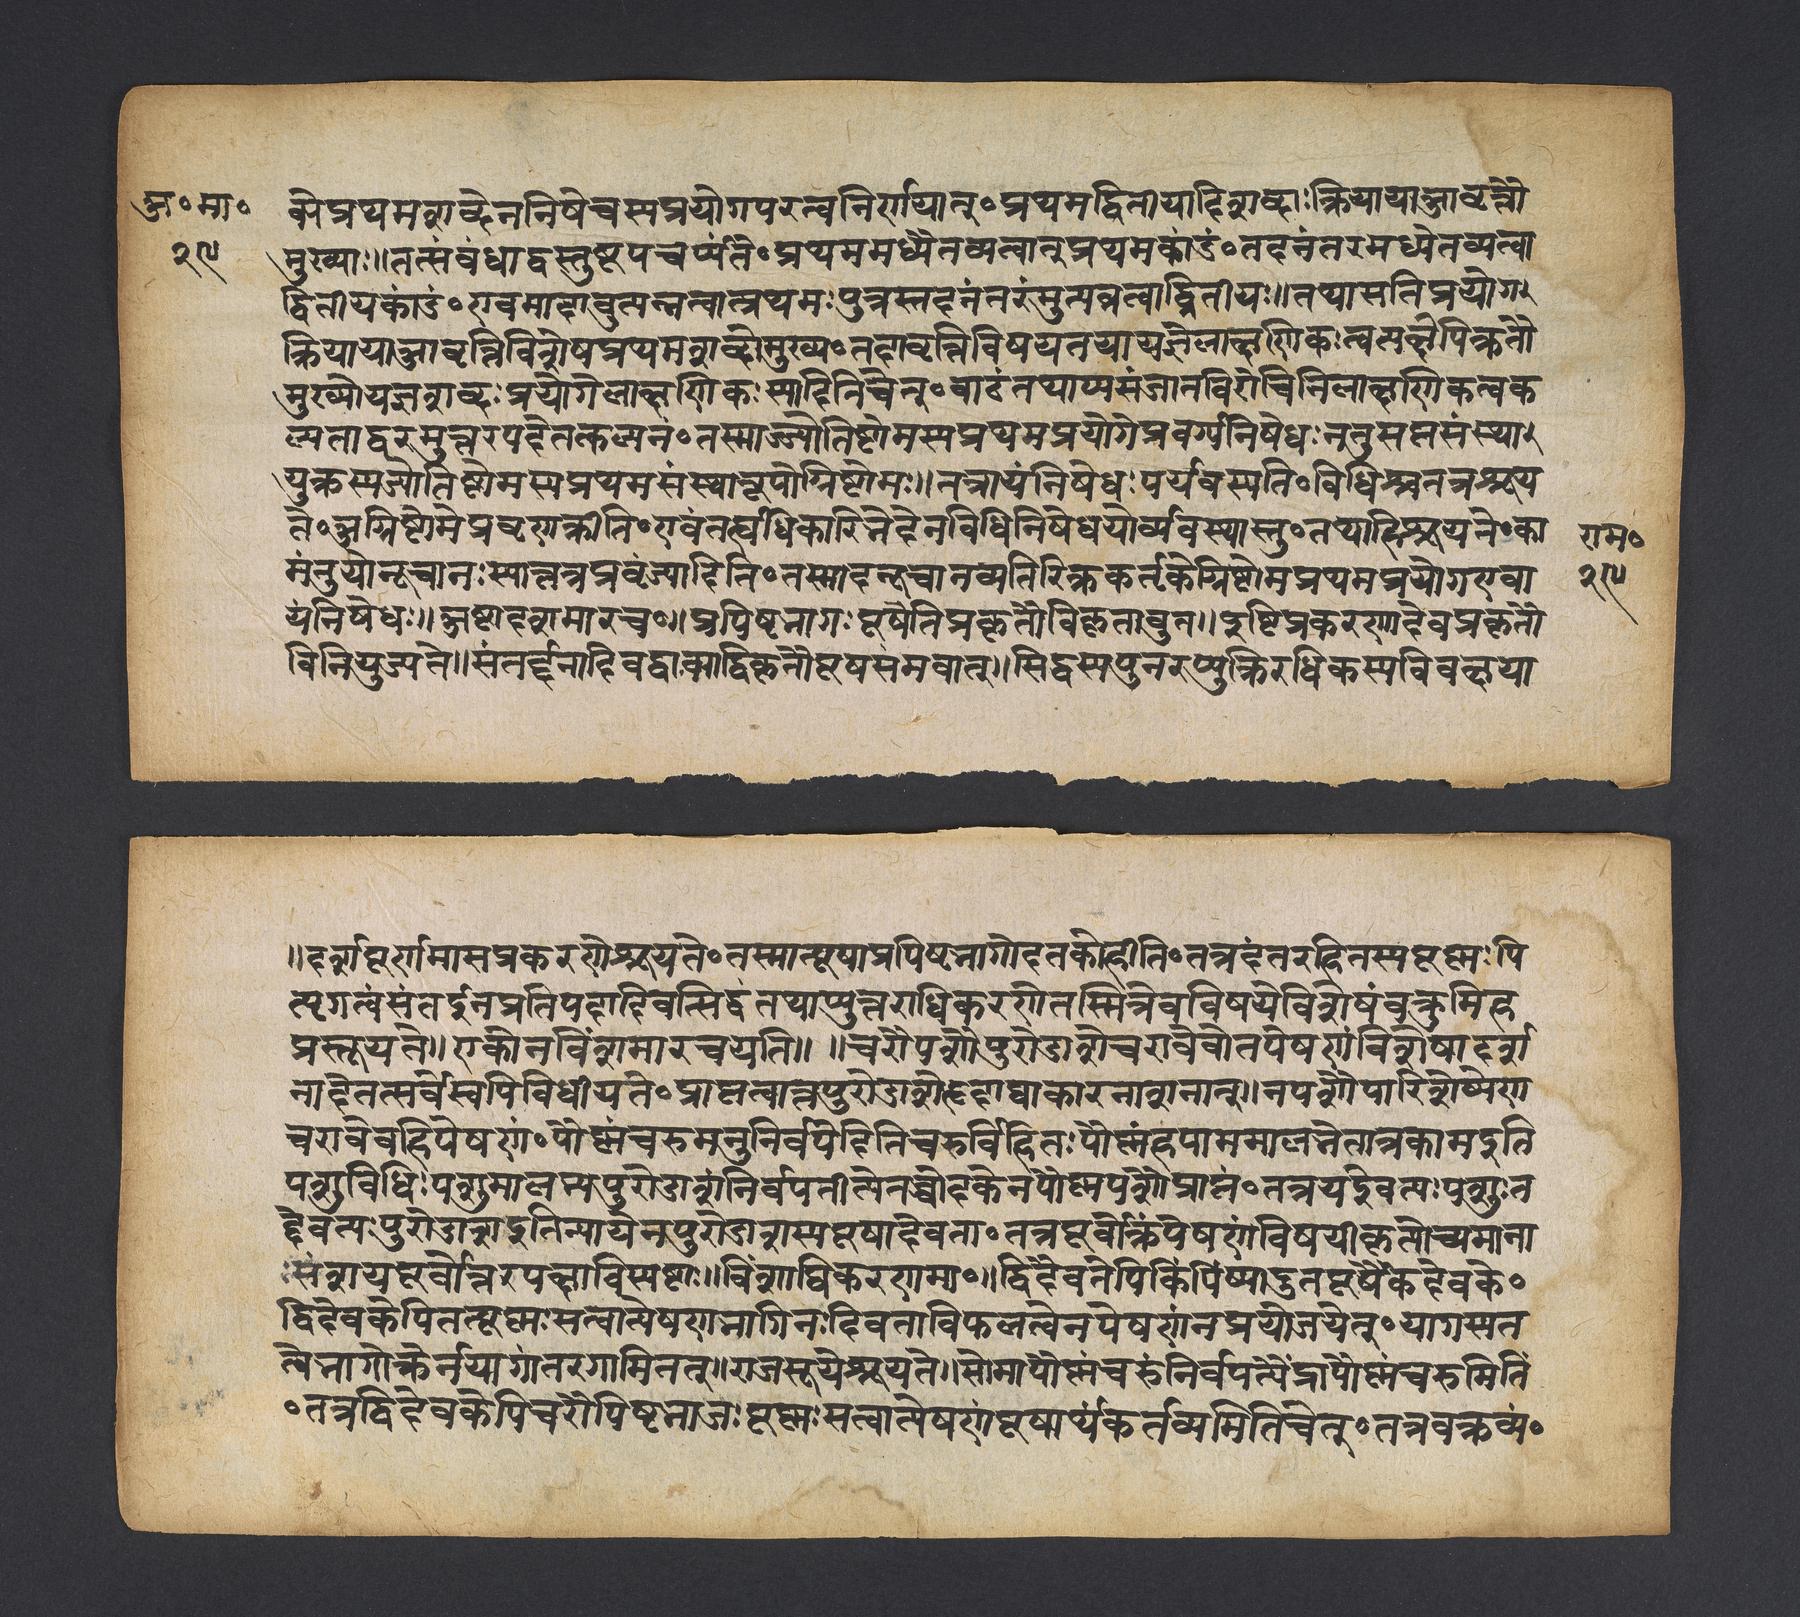 अ॰ मा॰
२९
क्येप्रथमशब्देननिषेधस्यप्रयोगपरत्वनिर्णयात्॰प्रथमद्वितीयादिशब्दाःक्रियायाआवृत्तौ
मुख्याः॥तत्संबंधाद्वस्तु
प्रथममध्येतव्यत्वात्प्रथमकांडं॰तदनंतरमध्येतव्यत्वा
द्वितीयकांडं॰एवमादावुत्पन्नत्वात्प्रथमःपुत्रस्तदनंतरंमुत्पन्नत्वाद्वितीयः॥तथासतिप्रयोग
क्रियायाआवृत्तिविशेषप्रथमशब्दोमुख्य॰
मुख्योयज्ञशब्दःप्रयोगेलाक्षणिकःस्यादितिचेत्॰बाढंतथाप्यसंजातविरोधिनिलाक्षणिकत्वक
ल्पनाद्वरमुत्तरपदेतत्कल्पनं॰तस्माज्ज्योतिष्टोमस्यप्रथमप्रयोगेप्रवर्ग्यनिषेधःननुसप्तसंस्था
युक्तस्यज्योतिष्टोमस्यप्रथमसंस्थारूपोग्निष्टोमः॥तत्रायंनिषेधःपर्यवस्यति॰विधिश्चतत्रश्रूय
ते॰अग्निष्टोमेप्रवृणक्तीति॰एवंतर्ह्यधिकारिभेदेनविधिनिषेधयोर्व्यवस्थास्तु॰तथाहिश्रूयते॰का
मंतुयोनूचानःस्यात्तत्रप्रवृंज्यादिति॰तस्मादनूचानव्यतिरिक्तकर्तृकेग्निष्टोमप्रथमप्रयोगएवा
यंनिषेधः॥अष्टादशमारच॰॥प्रपिष्टभागःपूषेतिप्रकृतौविकृतावुत॥इष्टिप्रकरणादेवप्रकृतौ
विनियुज्यते॥संतर्द्दनादिवद्वाक्याद्विकृतौपूषसंभवात्॥सिद्धस्यपुनरप्युक्तिरधिकस्यविवक्षया
राम॰
२९
॥दर्शपूर्णमासप्रकरणेश्रूयते॰तस्मात्पूषाप्रपिष्टभागोदंतकोहीति॰तत्रदंतरहितस्यपूष्णःपि
ष्टभागत्वंसंतर्दनप्रतिपदादिवत्सिद्धंतथाप्युत्तराधिकरणेतस्मिन्नेवविषयेविशेषंवक्तुमिह
प्रस्तूयते॥एकोनविंशमारचयति॥ ॥चरौपशौपुरोडाशेचरावेवोतपेषणंविशेषादर्श
नादेतत्सर्वेस्वपिविधीयते॰प्राप्तत्वान्नपुरोडाशेहृदाद्याकारनाशनात्॥नपशौपारिशेष्येण
चरावेवहिपेषणं॰पौष्णंचरुमनुनिर्वपेदितिचरुर्विहितः
पशुविधिःपशुमालभ्यपुरोडाशंनिर्वपतीत्येतच्चोदकेनपौष्णपशौप्राप्तं॰तत्रयद्देवत्यःपशुःत
द्देवत्यःपुरोडाशइतिन्यायेनपुरोडाशस्यपूषादेवता॰तत्रपूर्वोक्तंपेषणंविषयीकृत्योच्यमाना
संशयपूर्वोत्तरपक्षाविस्पष्टाः॥विंशाधिकरणमा॰॥द्विदैवतेपिकिंपिंष्यादुतपूषैकदेवके॰
द्विदेवकेपितत्पूष्णःसत्वात्पेषणभागिनःदेवताविफलत्वेनपेषणंनप्रयोजयेत्॰यागस्यत
त्वेभागोक्तेर्नयागांतरगामितत्॥राजसूयेश्रूयते॥सोमापौष्णंचरुंनिर्वपत्यैंद्रापौष्णंचरुमिति
॰तत्रद्विदेवकेपिचरौपिष्टभाजःपूष्णःसत्वात्पेषणंपूषार्थंकर्तव्यमितिचेत्॰तत्रवक्तव्यं॰